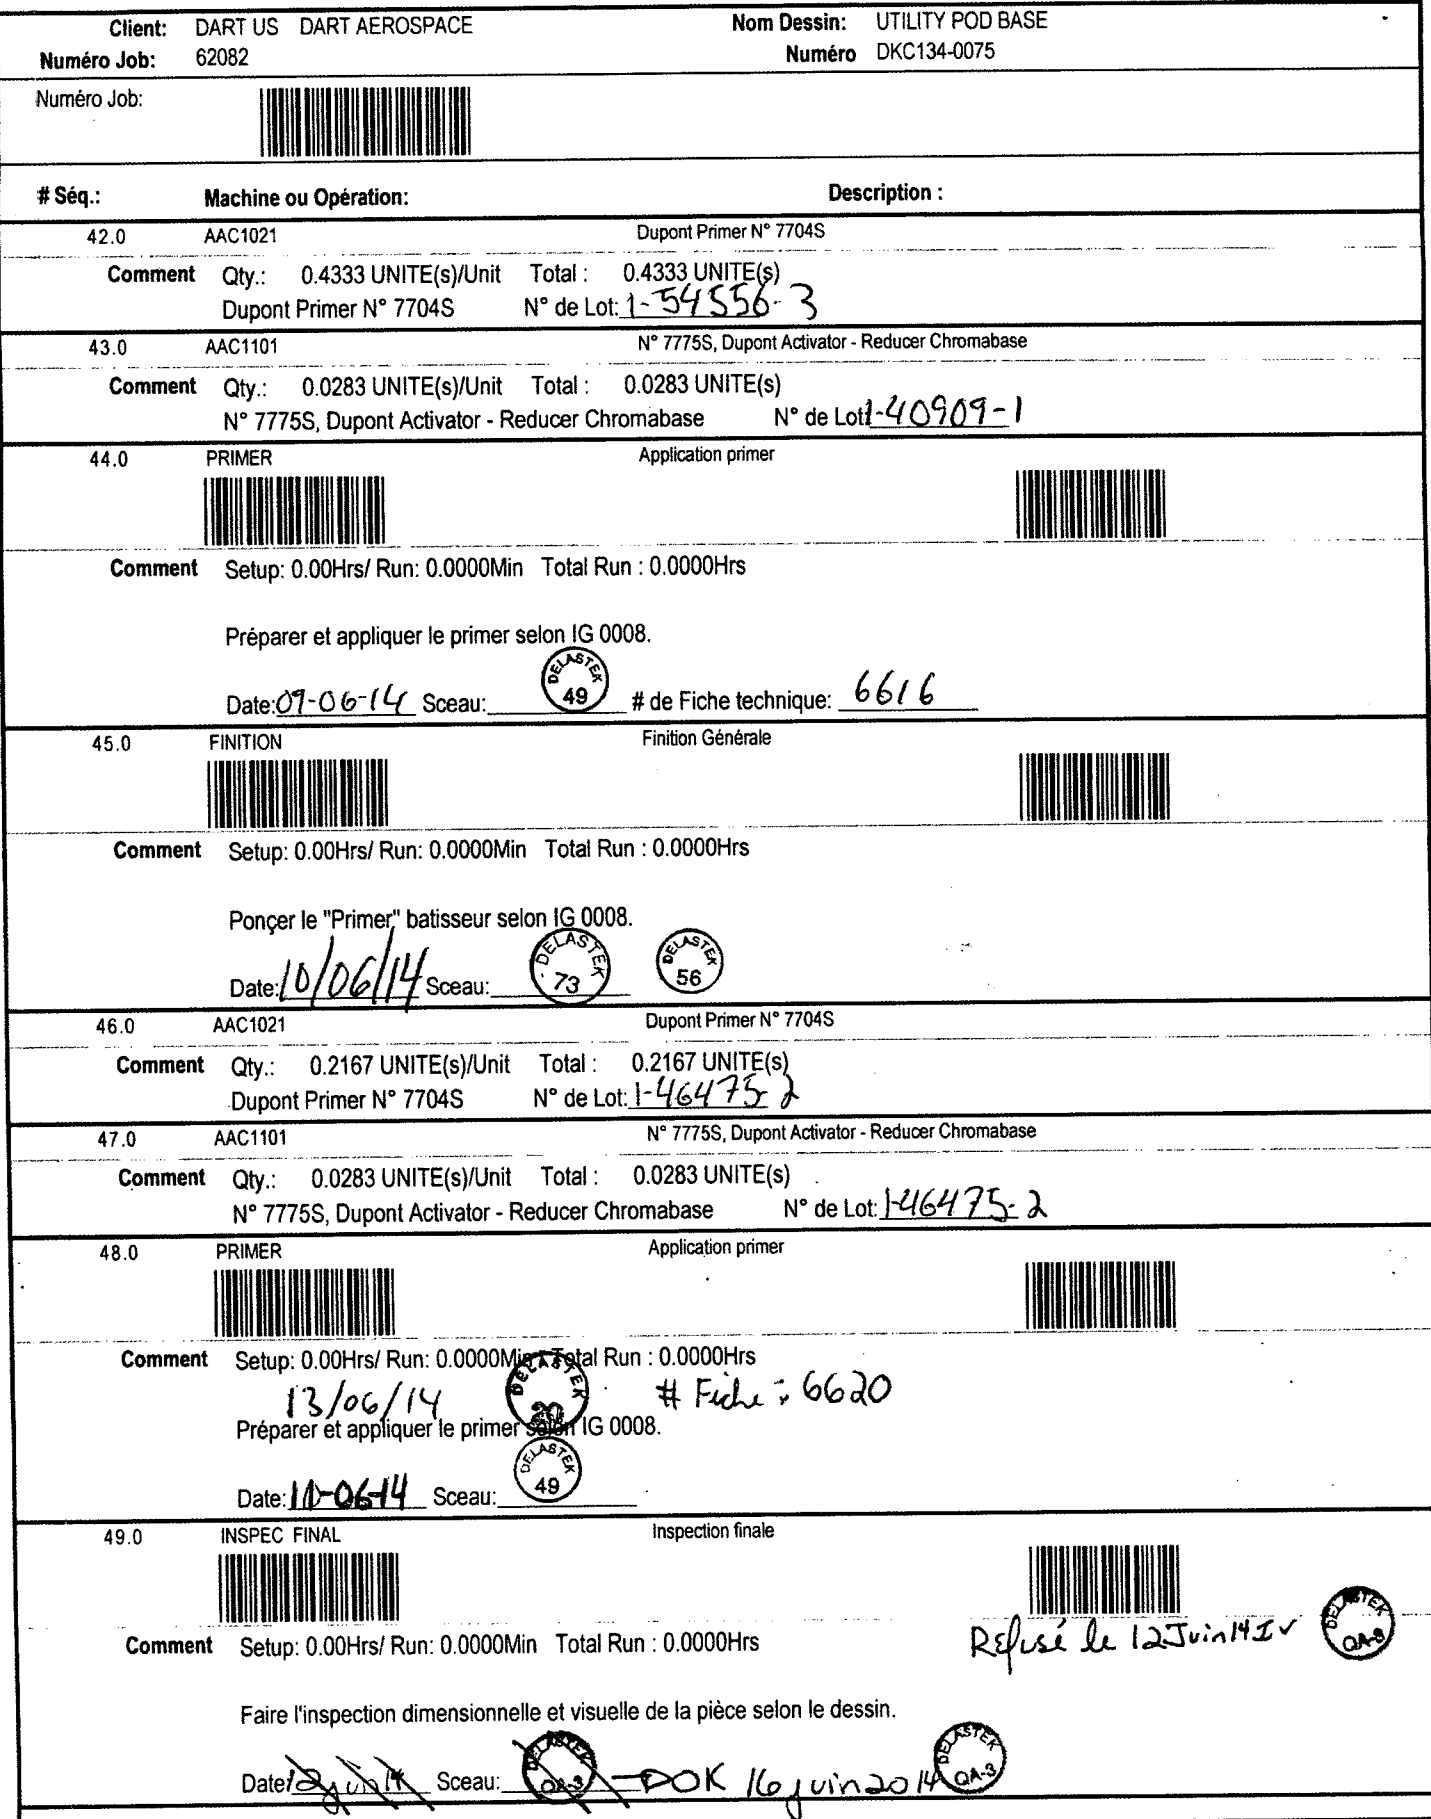 Client: DART US DART AEROSPACE Nom Dessin: UTILITY POD BASE
Numéro Job: 62082 Numéro DKC134-0075
Numéro Job:
# Séq.: Machine ou Opération: Description :
42.0 AAC1021 Dupont Primer N° 7704S
Comment Qty.: 0.4333 UNITE(s)/Unit Total : 0.4333 UNITE(s)
Dupont Primer N° 7704S N° de Lot: 1-54556-3
43.0 AAC1101 N° 7775S, Dupont Activator - Reducer Chromabase
Comment Qty.: 0.0283 UNITE(s)/Unit Total : 0.0283 UNITE(s)
N° 7775S, Dupont Activator - Reducer Chromabase N° de Lot: 1-40909-1
44.0 PRIMER Application primer
Comment Setup: 0.00Hrs/ Run: 0.0000Min Total Run : 0.0000Hrs
Préparer et appliquer le primer selon IG 0008.
Date: 09-06-14 Sceau: DELASTEK 49 # de Fiche technique: 6616
45.0 FINITION Finition Générale
Comment Setup: 0.00Hrs/ Run: 0.0000Min Total Run : 0.0000Hrs
Ponçer le "Primer" batisseur selon IG 0008.
Date: 10/06/14 Sceau: DELASTEK 73 DELASTEK 56
46.0 AAC1021 Dupont Primer N° 7704S
Comment Qty.: 0.2167 UNITE(s)/Unit Total : 0.2167 UNITE(s)
Dupont Primer N° 7704S N° de Lot: 1-46475-2
47.0 AAC1101 N° 7775S, Dupont Activator - Reducer Chromabase
Comment Qty.: 0.0283 UNITE(s)/Unit Total : 0.0283 UNITE(s)
N° 7775S, Dupont Activator - Reducer Chromabase N° de Lot: 1-46475-2
48.0 PRIMER Application primer
Comment Setup: 0.00Hrs/ Run: 0.0000Min Total Run : 0.0000Hrs
13/06/14 DELASTEK # Fiche : 6620
Préparer et appliquer le primer selon IG 0008.
Date: Sceau: DELASTEK 49
49.0 INSPEC FINAL Inspection finale
Refusé le 12 Juin 14 DELASTEK
Comment Setup: 0.00Hrs/ Run: 0.0000Min Total Run : 0.0000Hrs
Faire l'inspection dimensionnelle et visuelle de la pièce selon le dessin.
Date: 12 juin 14 Sceau: DELASTEK QA-3 OK 16 juin 2014 DELASTEK QA-3